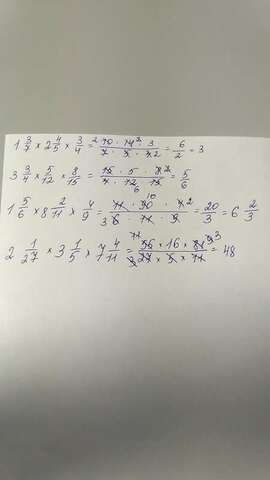 1 3/7 × 2 4/5 × 3/4 = 10 · 14 · 3 / 7 · 5 · 4 2 = 6/2 = 3
3 3/4 × 5/12 × 8/15 = 15 · 5 · 8 2 / 4 · 12 6 · 15 = 5/6
1 5/6 × 8 2/11 × 4/9 = 11 · 90 10 · 4 2 / 3 6 · 11 · 9 = 20/3 = 6 2/3
2 1/27 × 3 1/5 × 7 4/11 = 55 11 × 16 × 81 3 / 27 × 5 × 11 = 48